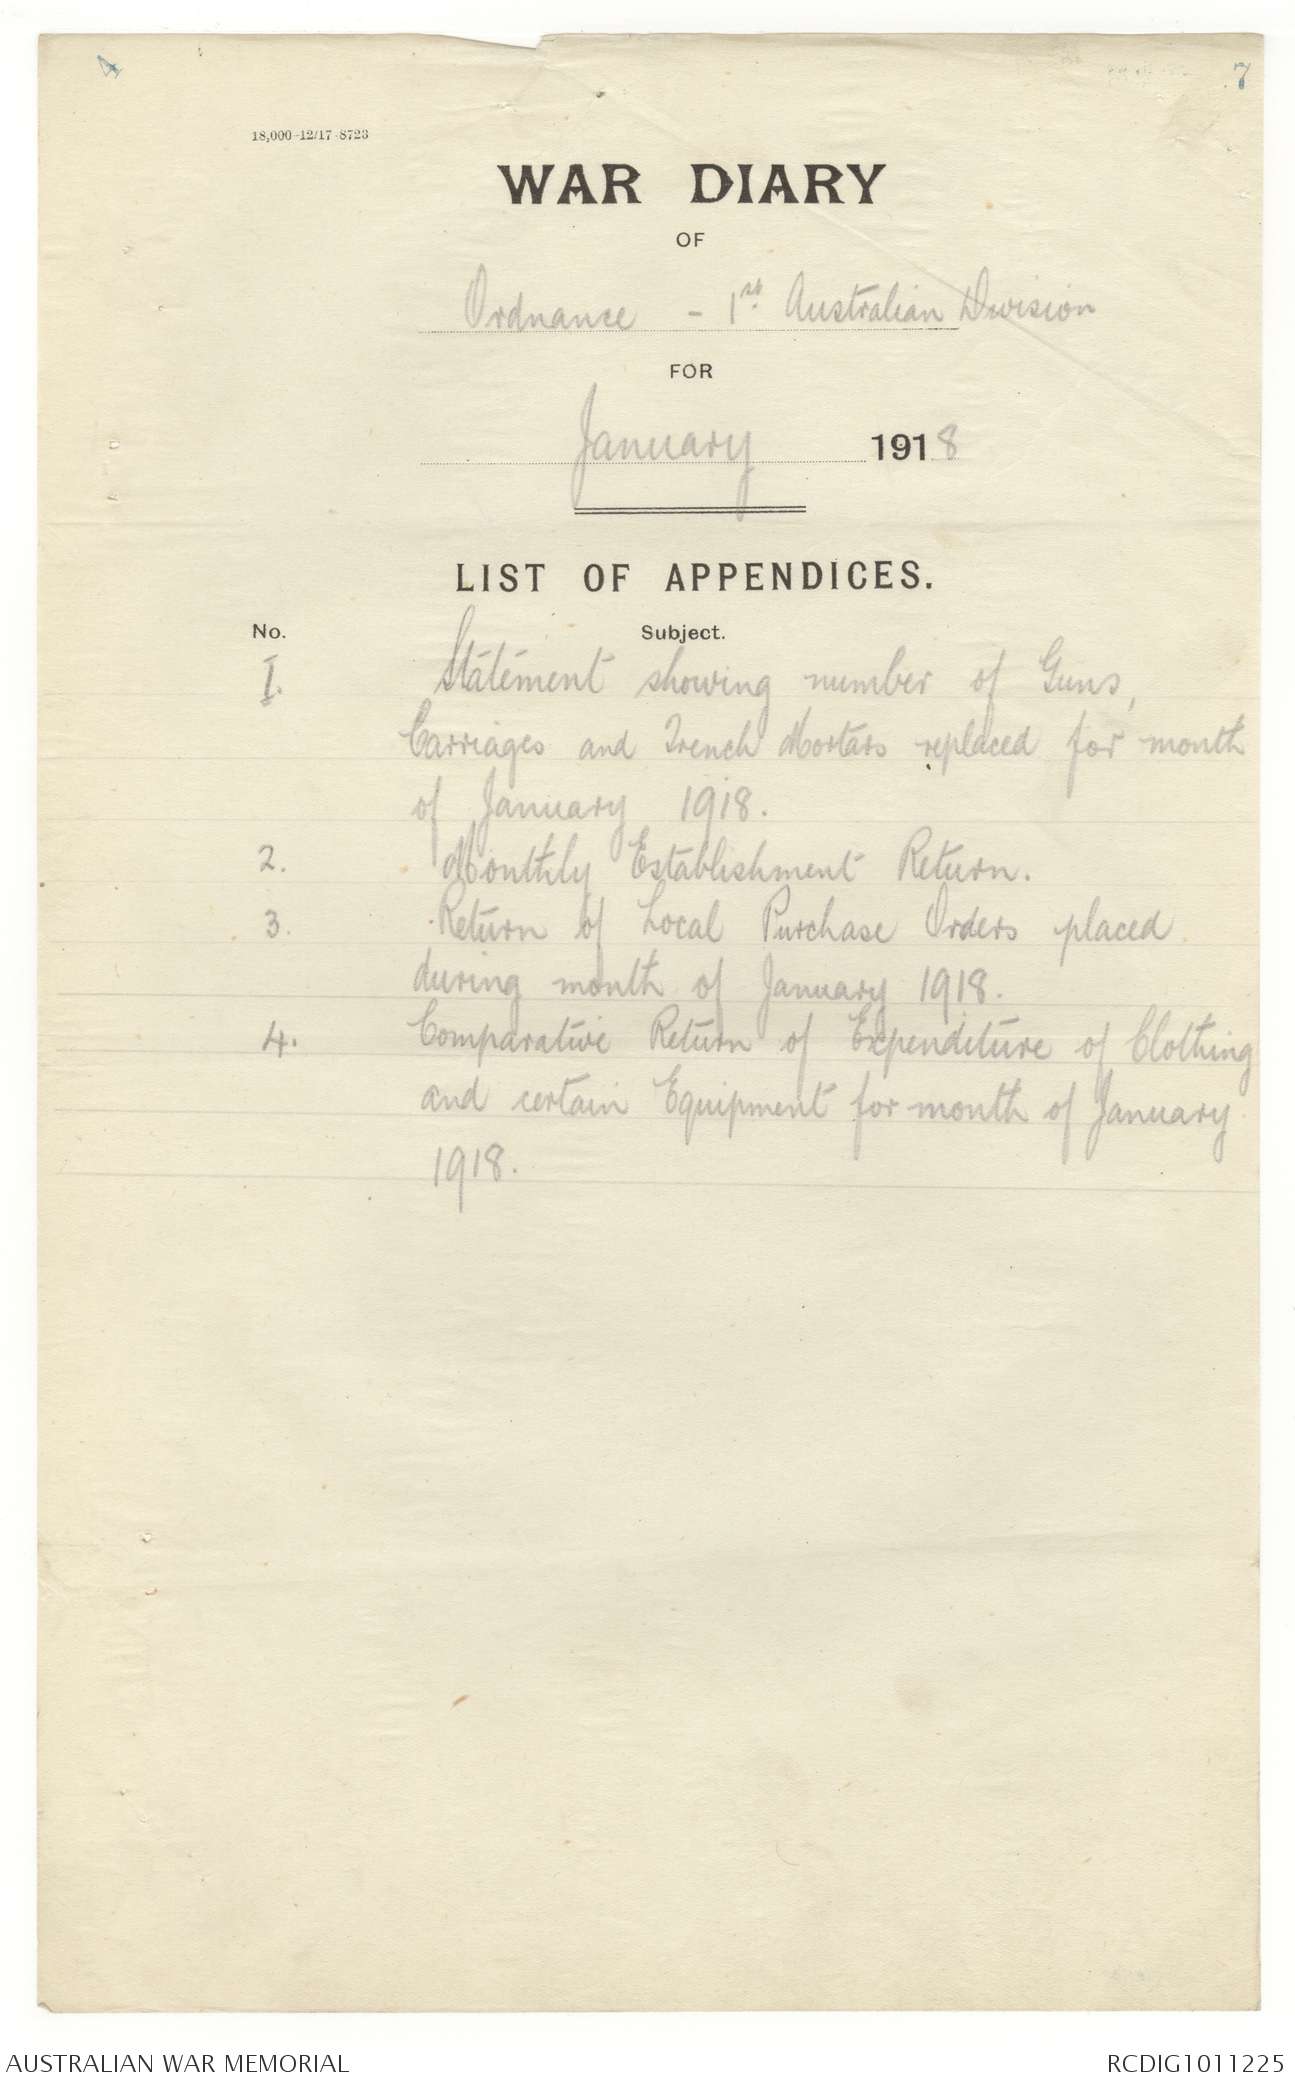 4
7
18,000-12/17-8723
WAR DIARY
OF
Ordnance - 1st Australian Division
FOR
January 1918
LIST OF APPENDICES.
No. Subject.
I. Statement showing number of Guns,
Carriages and Trench Mortars replaced for month
of January 1918.
2. Monthly Establishment Return.
3. Return of Local Purchase Orders placed
during month of January 1918.
4. Comparative Return of Expenditure of Clothing
and certain Equipment for month of January
1918.
AUSTRALIAN WAR MEMORIAL
RCDIG1011225